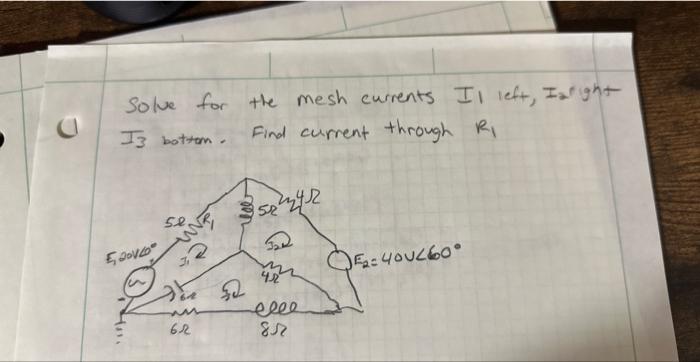 Solve for the mesh currents I1 left, I2 right
I3 bottom. Find current through R1
5Ω R1
5Ω
4Ω
E1 20V∠0°
I1
I2
E2=40V∠60°
4Ω
6Ω
I3
6Ω
8Ω